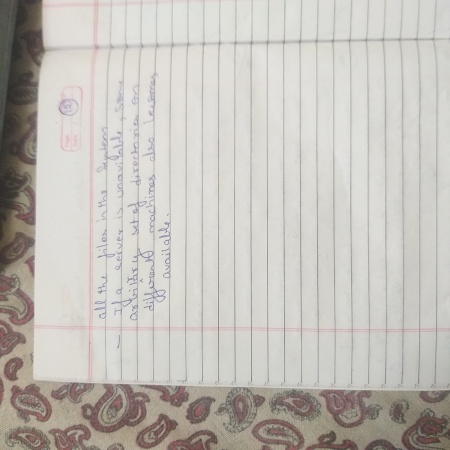 all the files in the system
- If a server is unavailable, some
arbitary set of directories on
different machines also becomes
available.